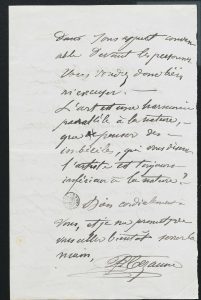 dans Sous
devant la personne
Vous voudrez donc bien
m'excuser.
L'art est une harmonie
parallèle à la nature,
que penser des
imbécile, qui vous disent
l'artiste est toujours
inférieur à la nature?
Bien cordialement
vous, et je me promets de
vous aller bientôt serrer la
main,
P. Cezanne